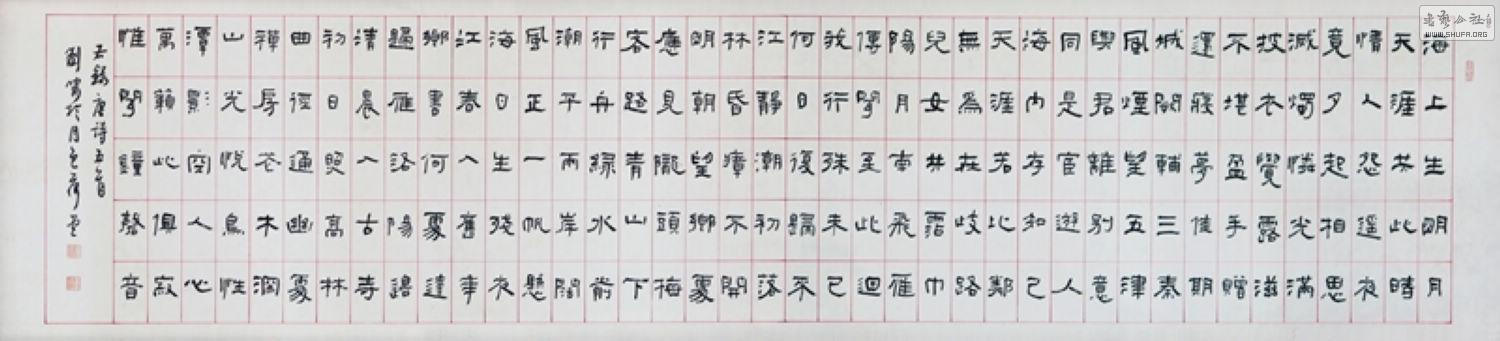 海上生明月
天涯共此時
情人怨遙夜
竟夕起相思
滅燭憐光滿
披衣覺露滋
不堪盈手贈
還寢夢佳期
城闕輔三秦
風煙望五津
與君離別意
同是宦遊人
海內存知己
天涯若比鄰
無為在歧路
兒女共霑巾
陽月南飛雁
傳聞至此迴
我行殊未已
何日復歸來
江靜潮初落
林昏瘴不開
明朝望鄉處
應見隴頭梅
客路青山下
行舟綠水前
潮平兩岸闊
風正一帆懸
海日生殘夜
江春入舊年
鄉書何處達
歸雁洛陽邊
清晨入古寺
初日照高林
曲徑通幽處
禪房花木深
山光悅鳥性
潭影空人心
萬籟此俱寂
惟聞鐘磬音
右錄唐詩五首
劉 於月色齋
書藝公社
WWW.SHUFA.ORG